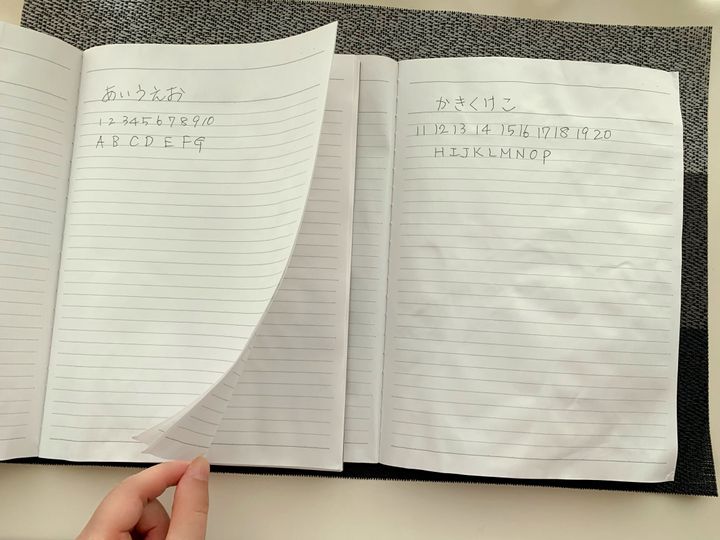 あいうえお
1 2 3 4 5 6 7 8 9 10
A B C D E F G
かきくけこ
11 12 13 14 15 16 17 18 19 20
H I J K L M N O P